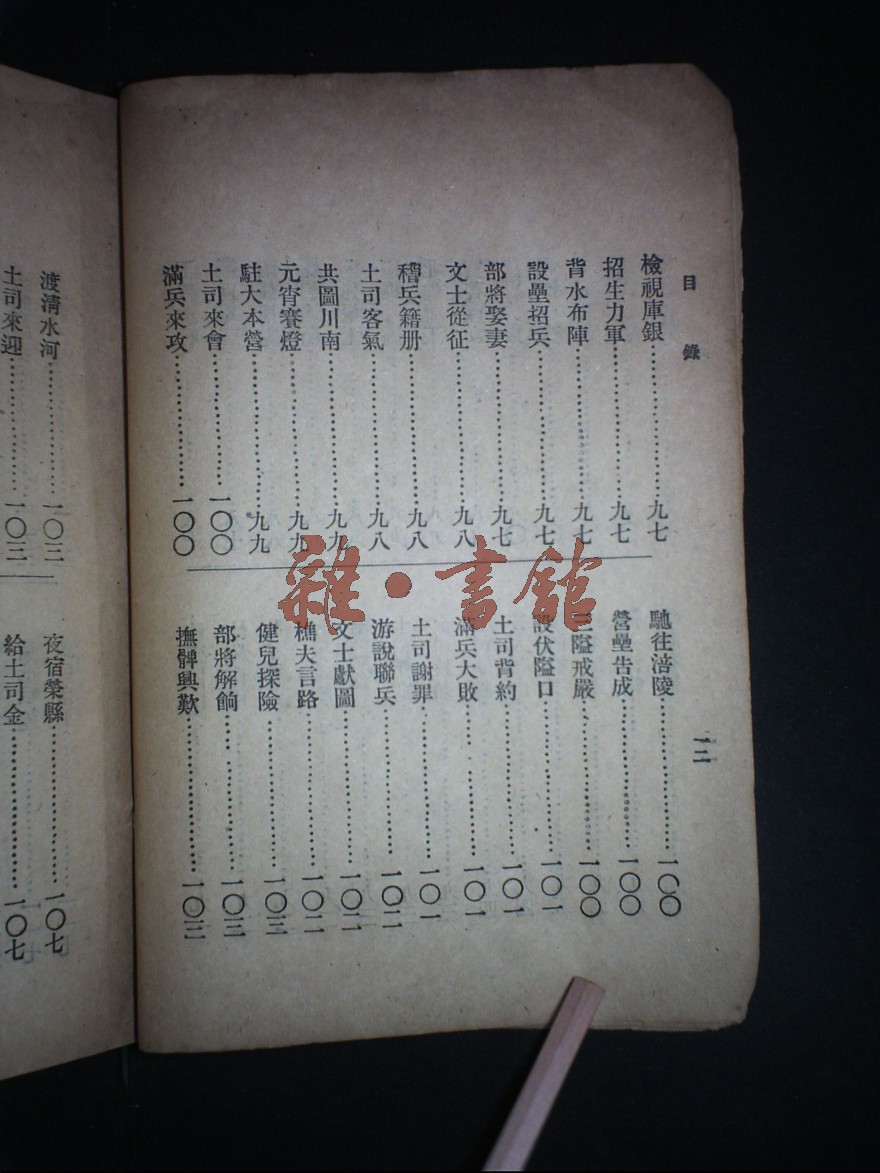 目錄
檢視庫銀……九七
招生力軍……九七
背水布陣……九七
設壘招兵……九七
部將娶妻……九七
文士從征……九八
稽兵籍册……九八
土司客氣……九八
共圖川南……九九
元宵賽燈……九九
駐大本營……九九
土司來會……一〇〇
滿兵來攻……一〇〇
馳往涪陵……一〇〇
營壘告成……一〇〇
三隘戒嚴……一〇〇
設伏隘口……一〇一
土司背約……一〇一
滿兵大敗……一〇一
土司謝罪……一〇一
游說聯兵……一〇二
文士獻圖……一〇二
樵夫言路……一〇二
健兒探險……一〇三
部將解餉……一〇三
撫髀興歎……一〇三
一二
渡清水河……一〇三
土司來迎……一〇三
夜宿榮縣……一〇七
給土司金……一〇七
雜·書館